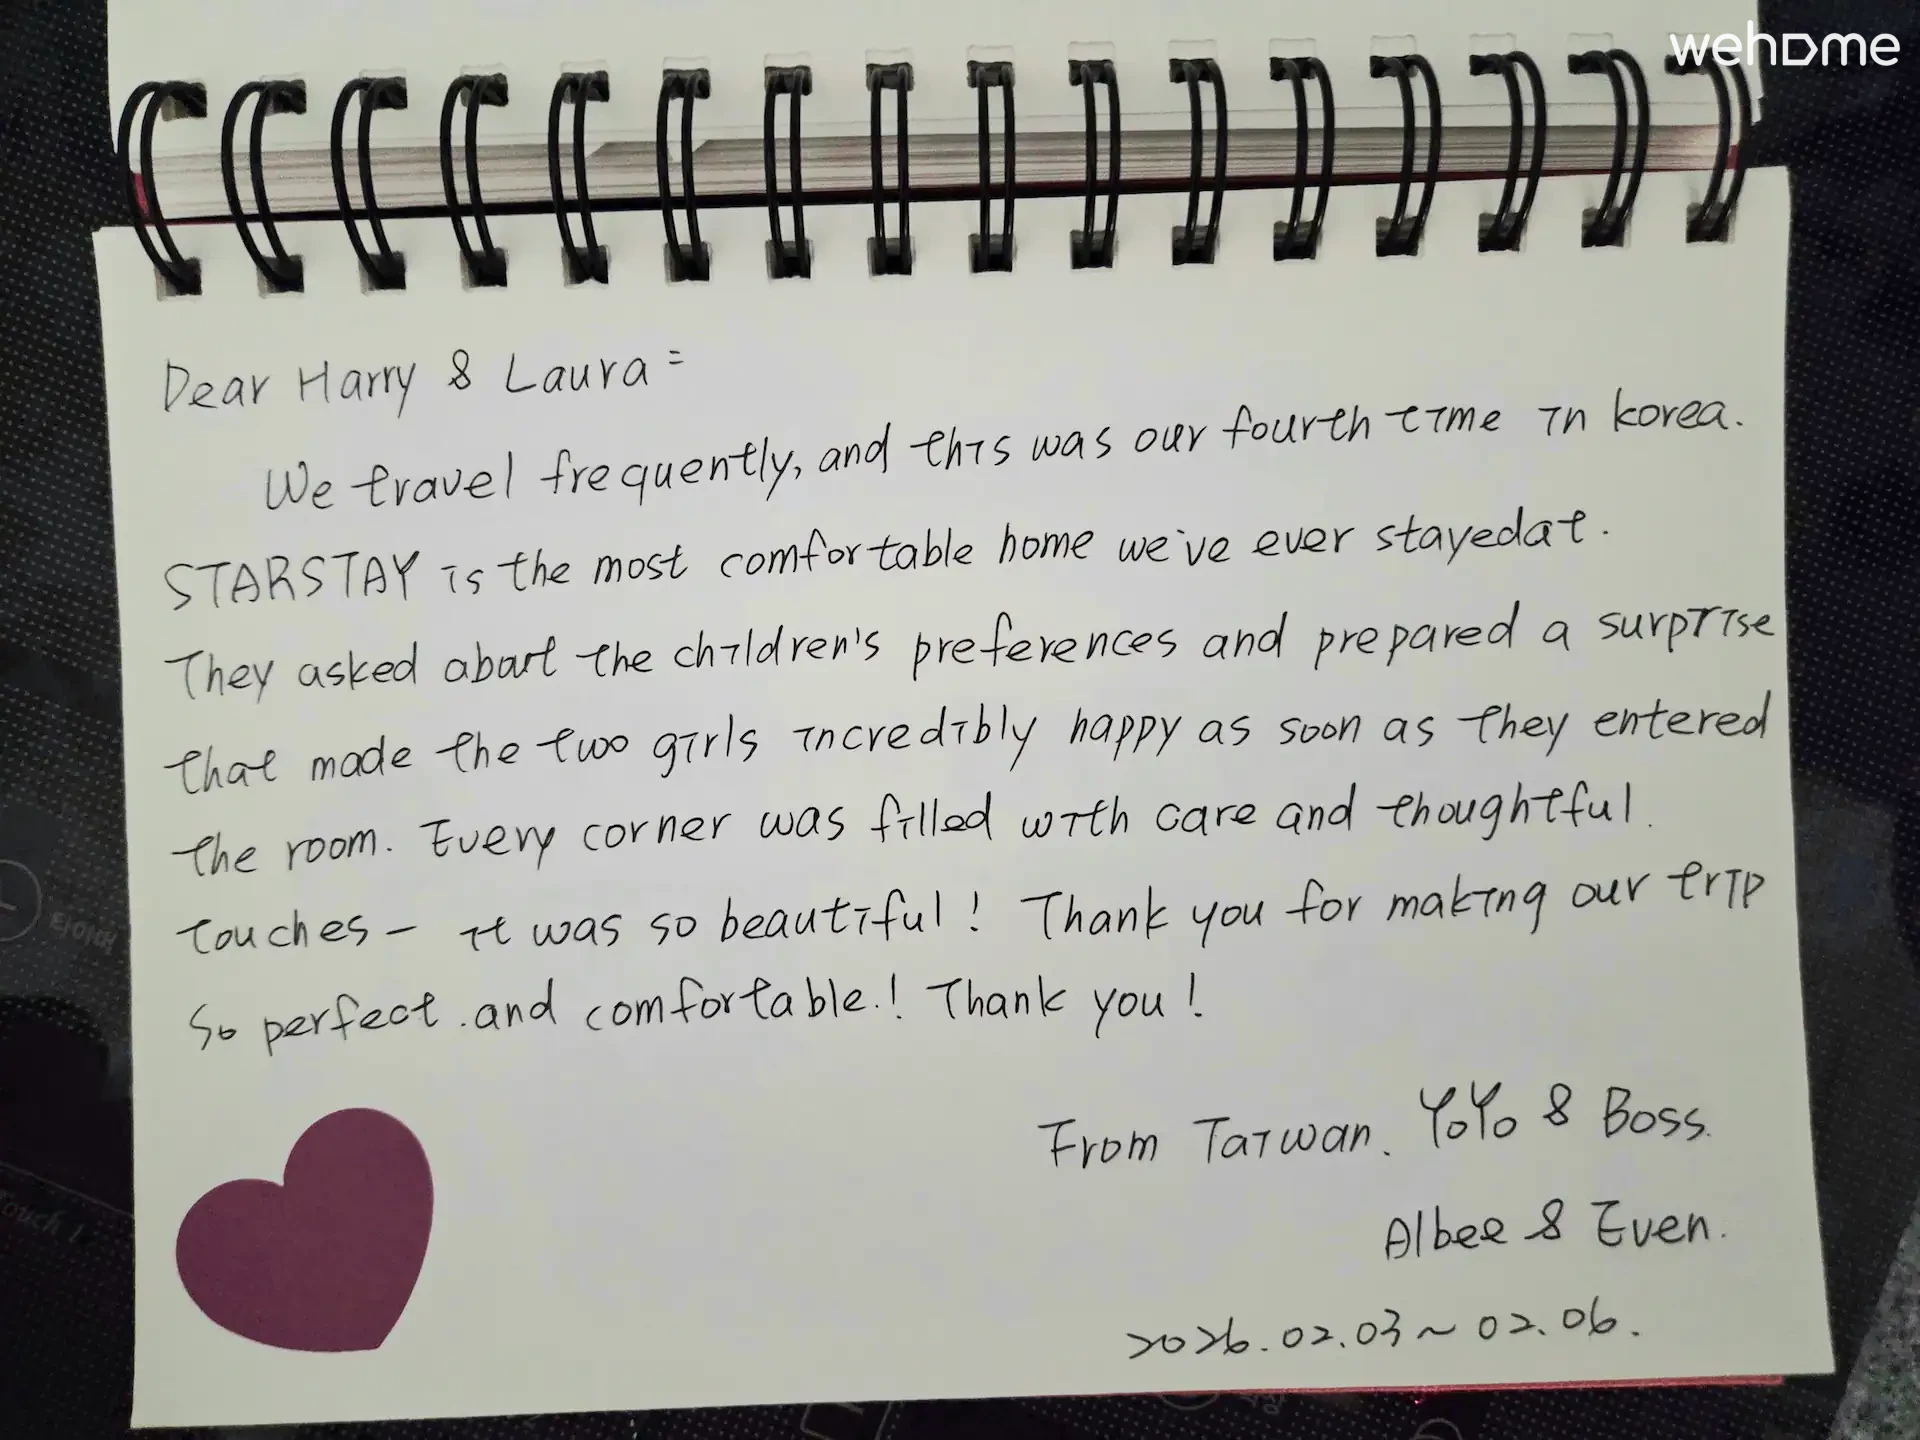 wehome
Dear Harry & Laura =
We travel frequently, and this was our fourth time in korea.
STARSTAY is the most comfortable home we've ever stayedat.
They asked about the children's preferences and prepared a surprise
that made the two girls incredibly happy as soon as they entered
the room. Every corner was filled with care and thoughtful.
touches - it was so beautiful! Thank you for making our trip
so perfect.and comfortable.! Thank you!
From Taiwan. YoYo & Boss.
Albee & Even.
2026.02.03~02.06.
타이머